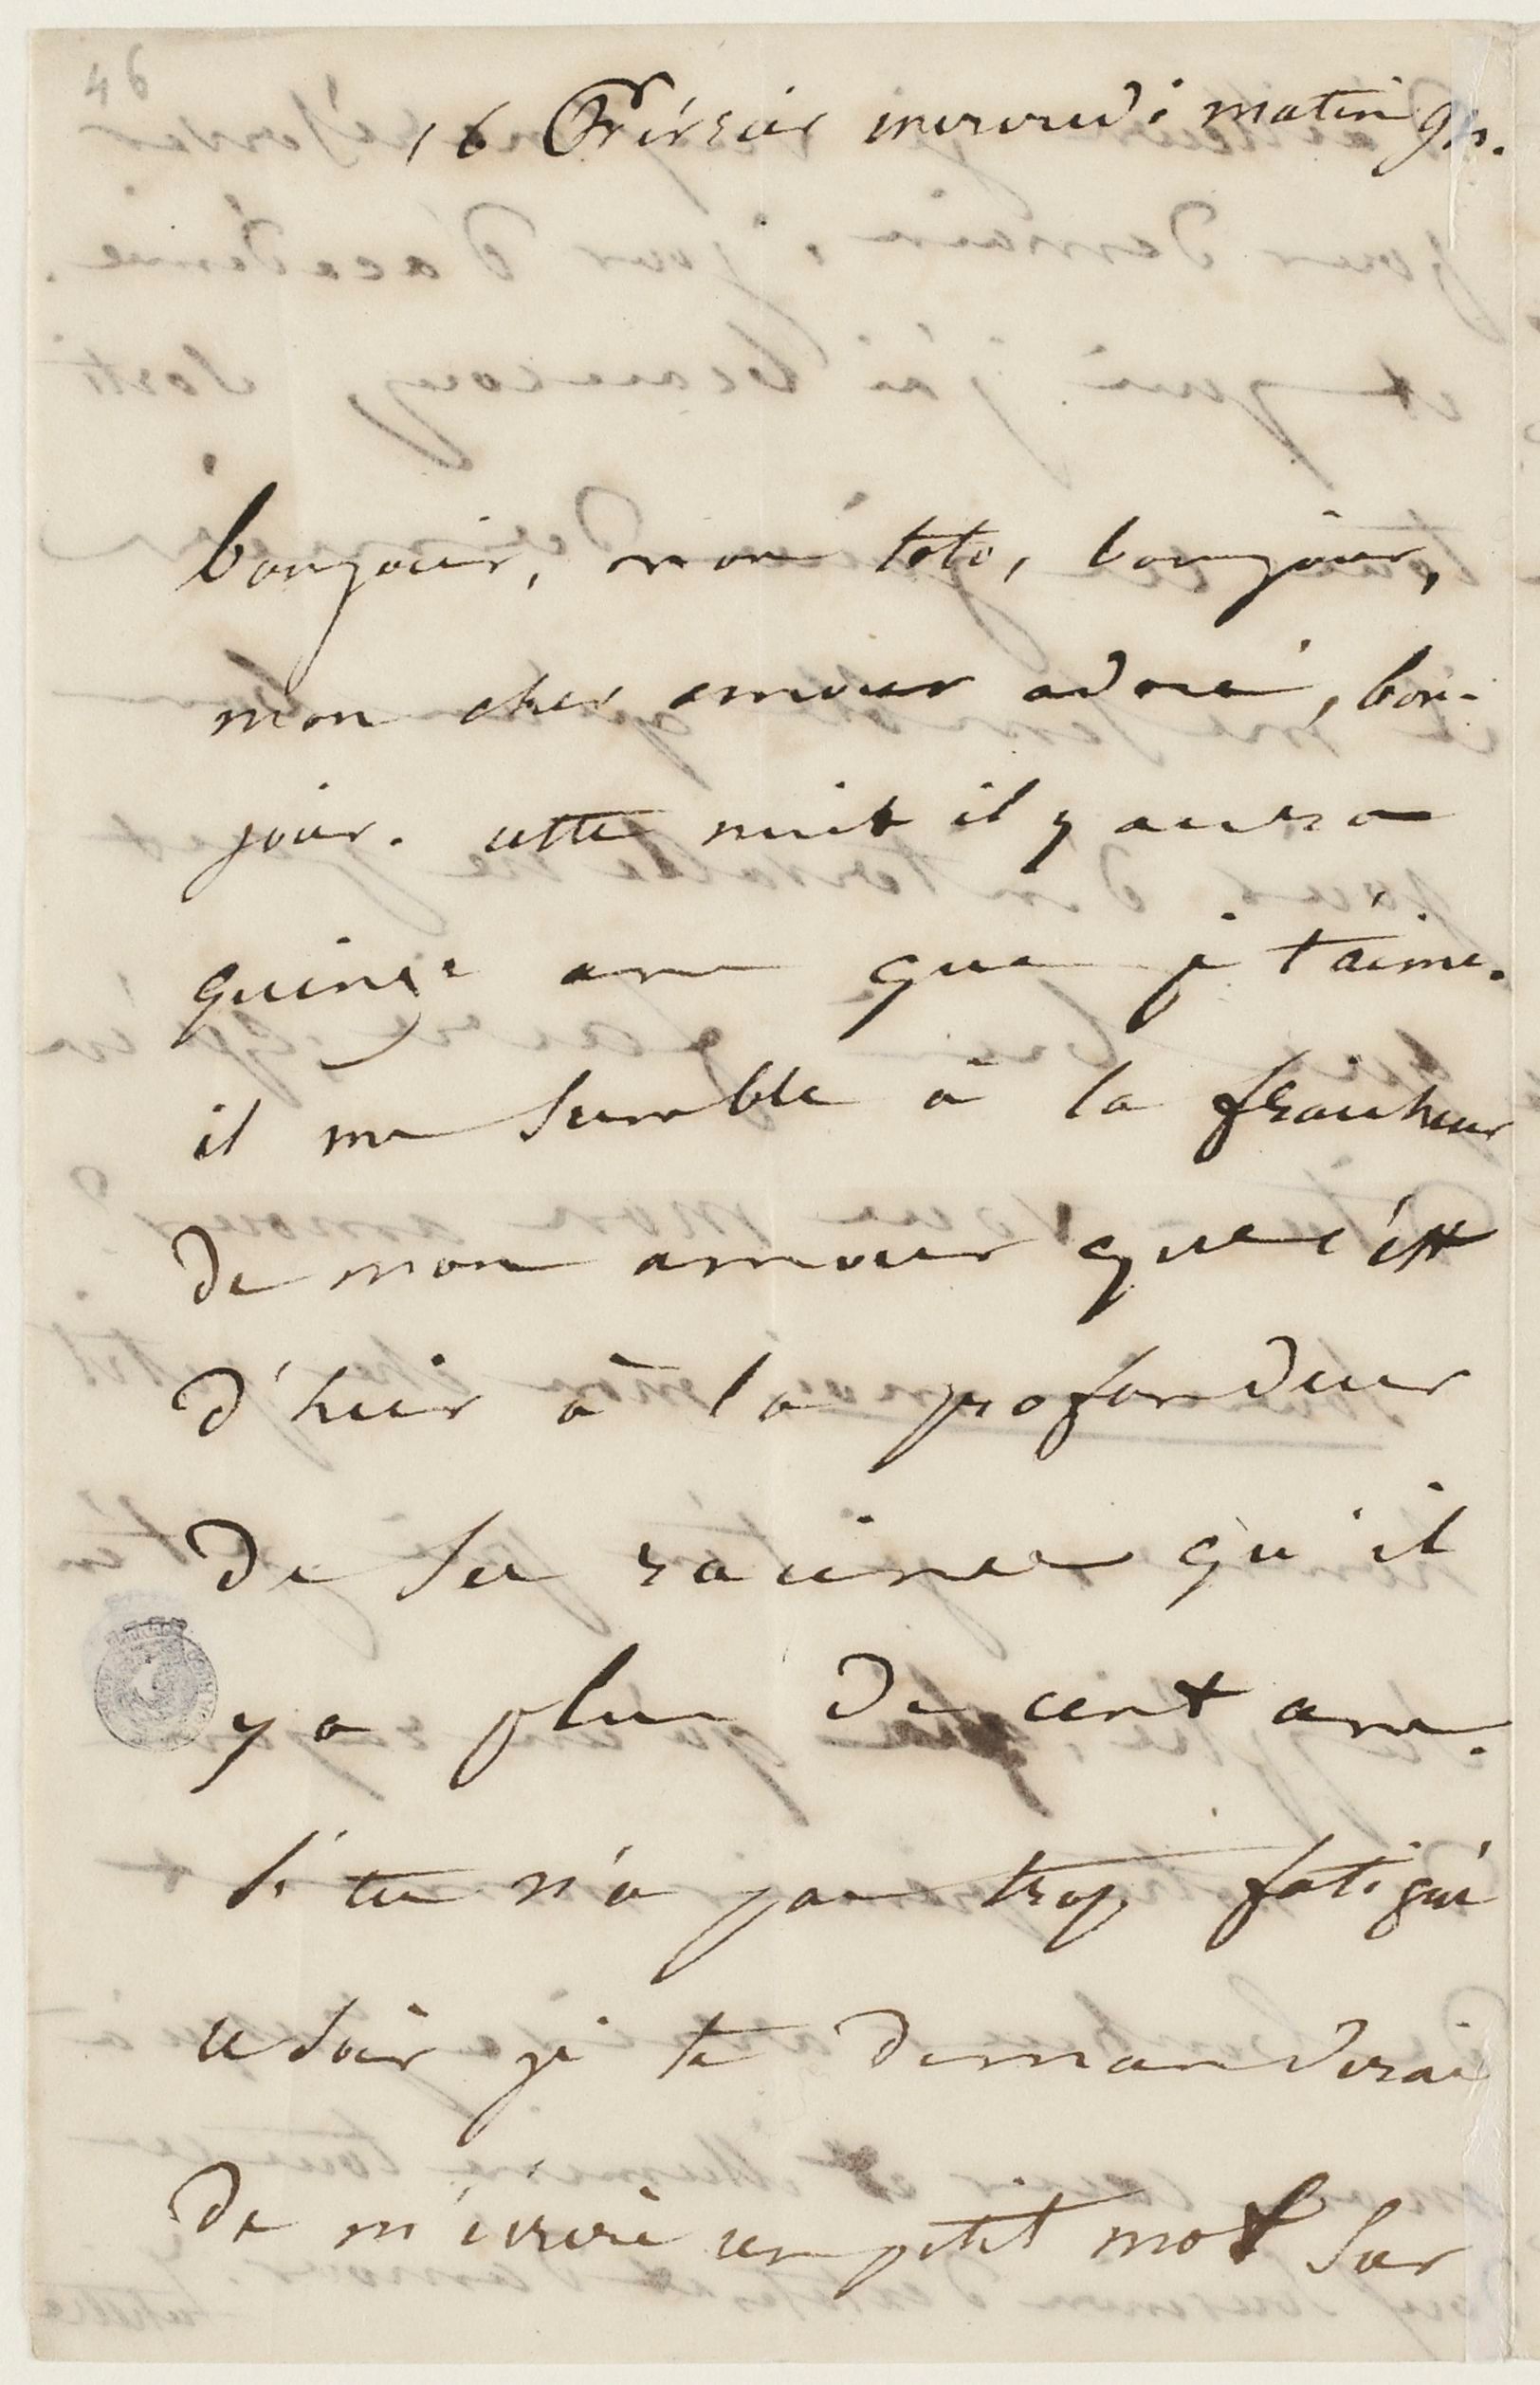 46
16 Février mercredi matin 9h.
bonjour, mon toto, bonjour,
mon cher amour adoré, bon-
jour. cette nuit il y aura
quinze ans que je t'aime.
il me semble à la fraicheur
de mon amour que c'est
d'hier à la profondeur
de ses racines qu'il
y a plus de cent ans.
Si tu n'es pas trop fatigué
ce soir je te demanderai
de m'écrire un petit mot sur